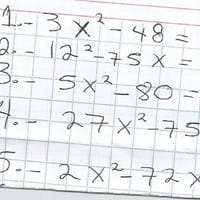 1.- 3x²-48=
2.- 12²-75x=
3.- 5x²-80=
4.- 27x²-75
5.- 2x²-72x